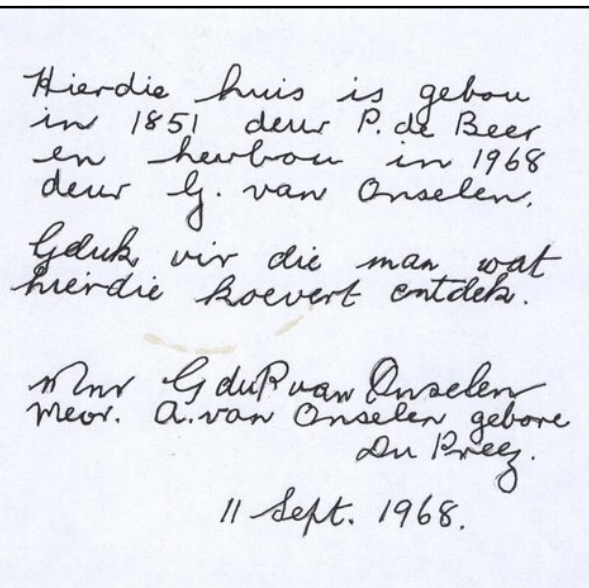 Hierdie huis is gebou
in 1851 deur P. de Beer
en herbou in 1968
deur G. van Onselen.
Geluk vir die man wat
hierdie koevert ontdek.
Mnr G du P van Onselen
Mevr. A. van Onselen gebore
Du Preez.
11 Sept. 1968.